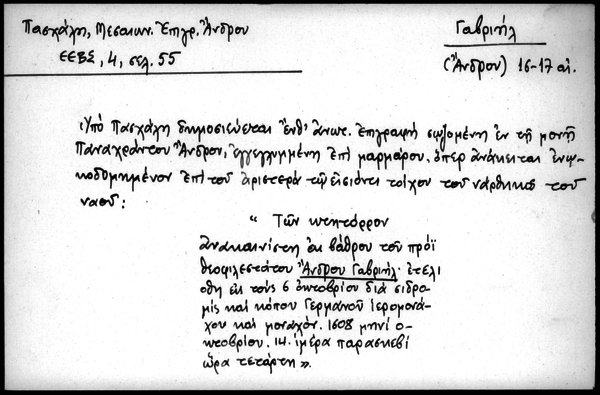 Πασχάλη, Μεσαιων. Ἐπιγρ. Ἄνδρου
ΕΕΒΣ, 4, σελ. 55
Γαβριήλ
(Ἄνδρου) 16-17 αἰ.
Ὑπὸ Πασχάλη δημοσιεύεται ἔνθ' ἄνωτ. ἐπιγραφὴ σωζομένη ἐν τῇ μονῇ
Παναχράντου Ἄνδρου, ἐγγεγλυμμένη ἐπὶ μαρμάρου, ὅπερ ἀνάκειται ἐνῳ-
κοδομημένον ἐπὶ τοῦ ἀριστερὰ τῷ εἰσιόντι τοίχου τοῦ νάρθηκος τοῦ
ναοῦ:
“ Τῶν κτητόρρον
ἀνακαινίστη ἐκ βάθρου τοῦ πρόϊ
θεοφιλεστάτου Ἄνδρου Γαβριήλ· ἐτελι
όθη εἰς τοὺς 6 ὀκτοβρίου διὰ σιδρο-
μῖς καὶ κόπου Γερμανοῦ ἱερομονά-
χου καὶ μοναχόν. 1608 μηνὶ ὀ-
κτοβρίου. 14. ἱμέρα παρασκεβὶ
ὥρα τετάρτη».